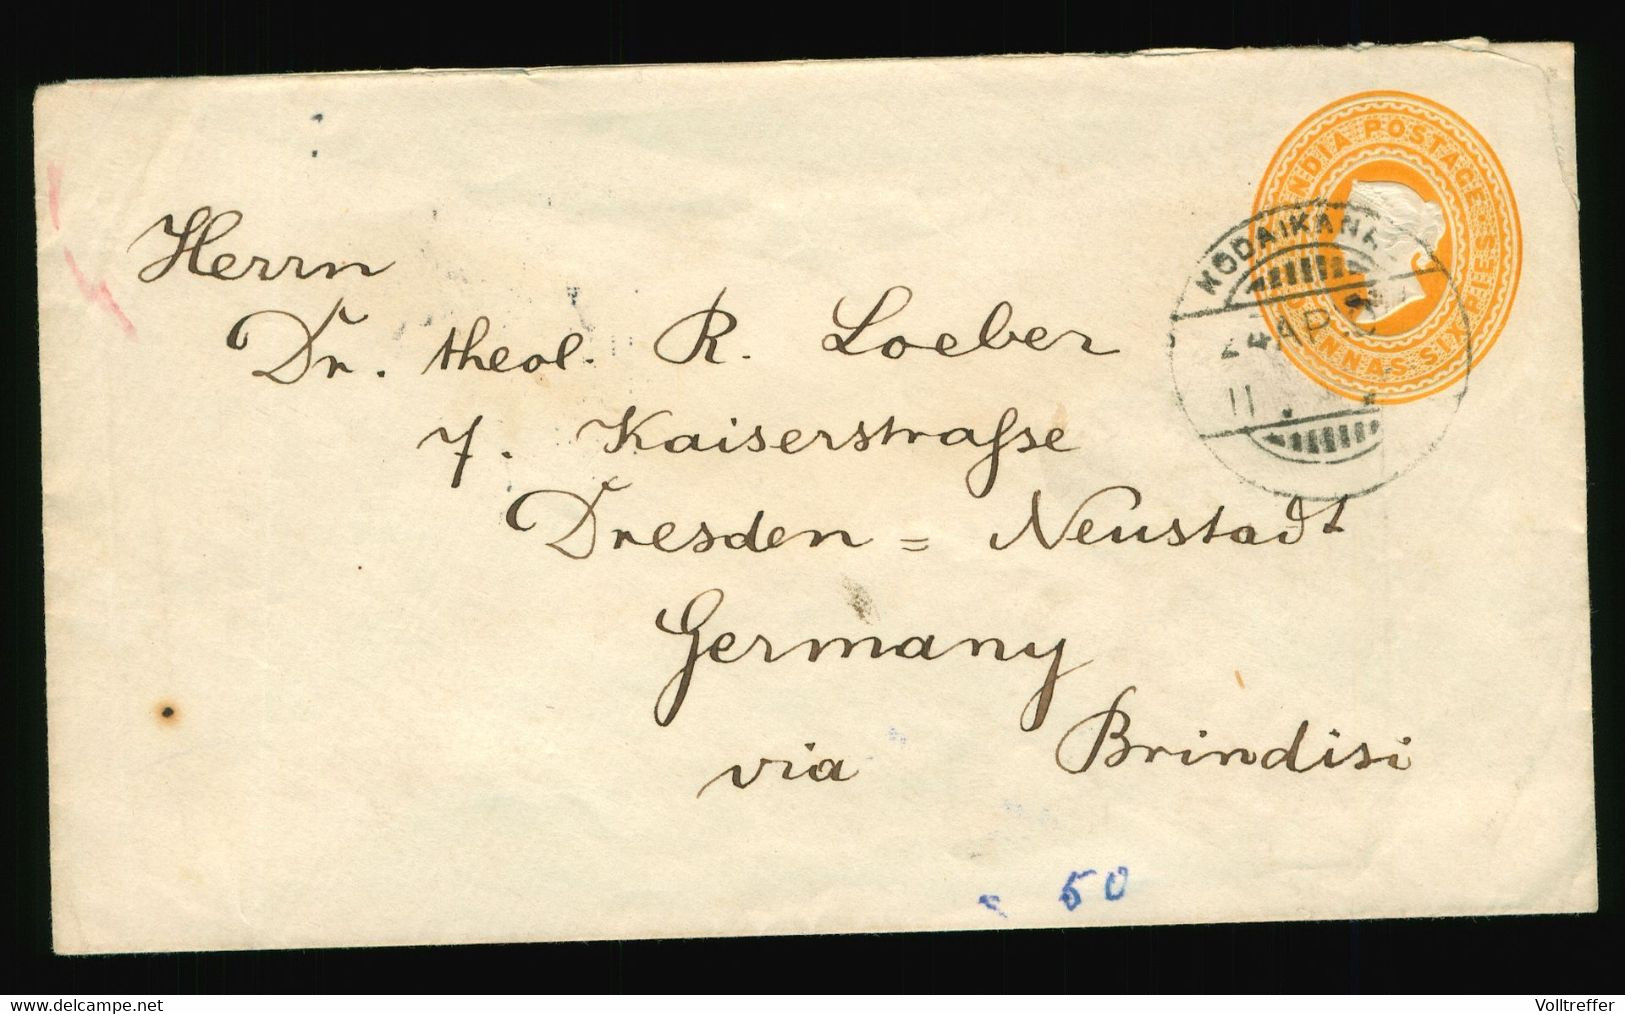 INDIA POSTAGE
ANNAS SIX PIES
KODAIKANA
AP.
11
Herrn
Dr. theol. R. Loeber
7. Kaiserstraſse
Dresden = Neustadt
Germany
via Brindisi
50
delcampe.net
Volltreffer